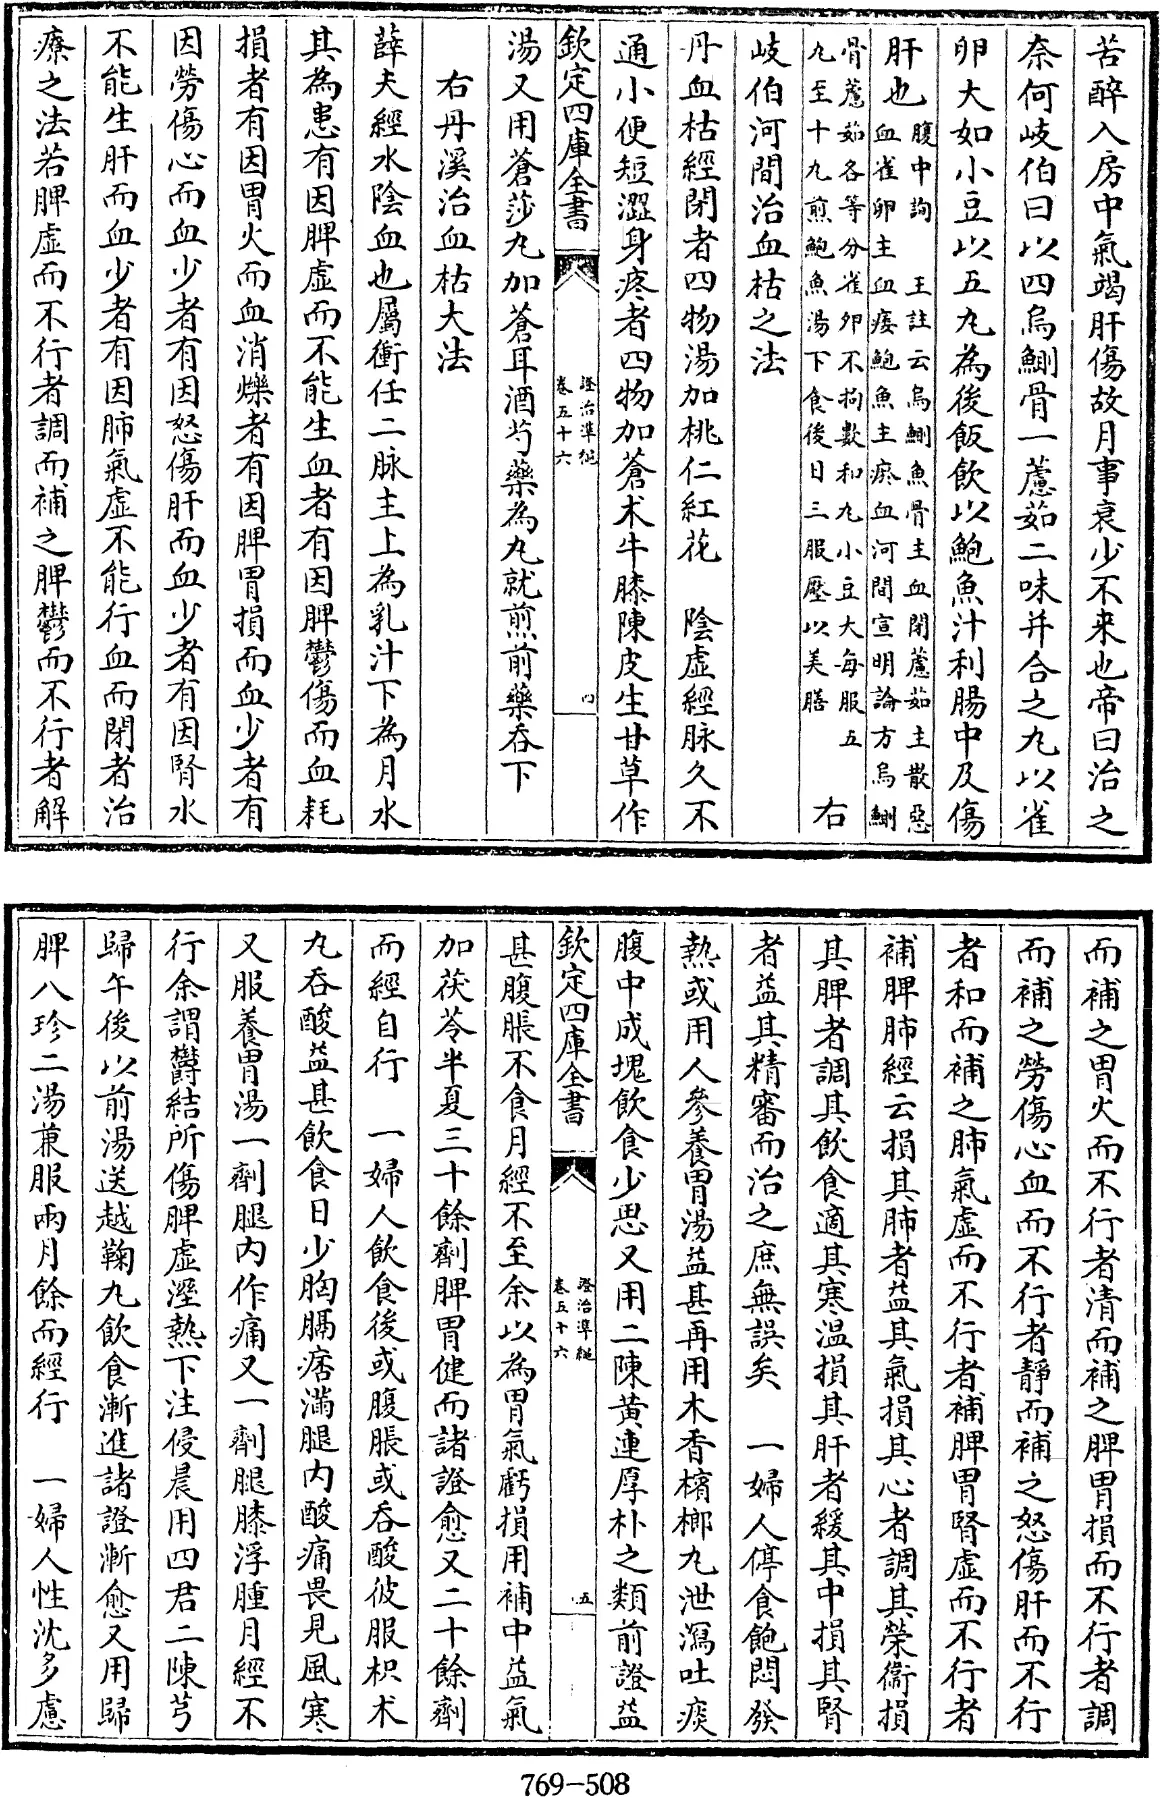 苦醉入房中氣竭肝傷故月事衰少不来也帝曰治之
奈何岐伯曰以四烏鰂骨一藘茹二味并合之丸以雀
卵大如小豆以五丸為後飯飲以鮑魚汁利腸中及傷
肝也腹中詢　王註云烏鰂魚骨主血閉藘茹主散惡
血雀卵主血痿鮑魚主瘀血河間宣明論方烏鰂
骨藘茹各等分雀卵不拘數和丸小豆大每服五
丸至十丸煎鮑魚湯下食後日三服壓以美膳　右
岐伯河間治血枯之法
丹血枯經閉者四物湯加桃仁紅花　陰虛經脉久不
通小便短澀身疼者四物加蒼术牛膝陳皮生甘草作
欽定四庫全書　證治準繩　卷五十六　四
湯又用蒼莎丸加蒼耳酒芍藥為丸就煎前藥吞下
右丹溪治血枯大法
薛夫經水陰血也屬衝任二脉主上為乳汁下為月水
其為患有因脾虛而不能生血者有因脾鬱傷而血耗
損者有因胃火而血消爍者有因脾胃損而血少者有
因勞傷心而血少者有因怒傷肝而血少者有因腎水
不能生肝而血少者有因肺氣虛不能行血而閉者治
療之法若脾虛而不行者調而補之脾鬱而不行者解
而補之胃火而不行者清而補之脾胃損而不行者調
而補之勞傷心血而不行者靜而補之怒傷肝而不行
者和而補之肺氣虛而不行者補脾胃腎虛而不行者
補脾肺經云損其肺者益其氣損其心者調其榮衞損
其脾者調其飲食適其寒温損其肝者緩其中損其腎
者益其精審而治之庶無誤矣　一婦人停食飽悶發
熱或用人參養胃湯益甚再用木香檳榔丸泄瀉吐痰
腹中成塊飲食少思又用二陳黄連厚朴之類前證益
欽定四庫全書　證治準繩　卷五十六　五
甚腹脹不食月經不至余以為胃氣虧損用補中益氣
加茯苓半夏三十餘劑脾胃健而諸證愈又二十餘劑
而經自行　一婦人飲食後或腹脹或吞酸彼服枳术
丸吞酸益甚飲食日少胸膈痞滿腿内酸痛畏見風寒
又服養胃湯一劑腿内作痛又一劑腿膝浮腫月經不
行余謂鬱結所傷脾虛溼熱下注侵晨用四君二陳芎
歸午後以前湯送越鞠丸飲食漸進諸證漸愈又用歸
脾八珍二湯兼服兩月餘而經行　一婦人性沈多慮
769-508